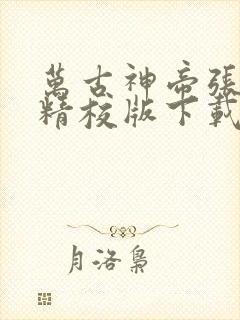 萬古神帝張
精校版下載
月洛梟